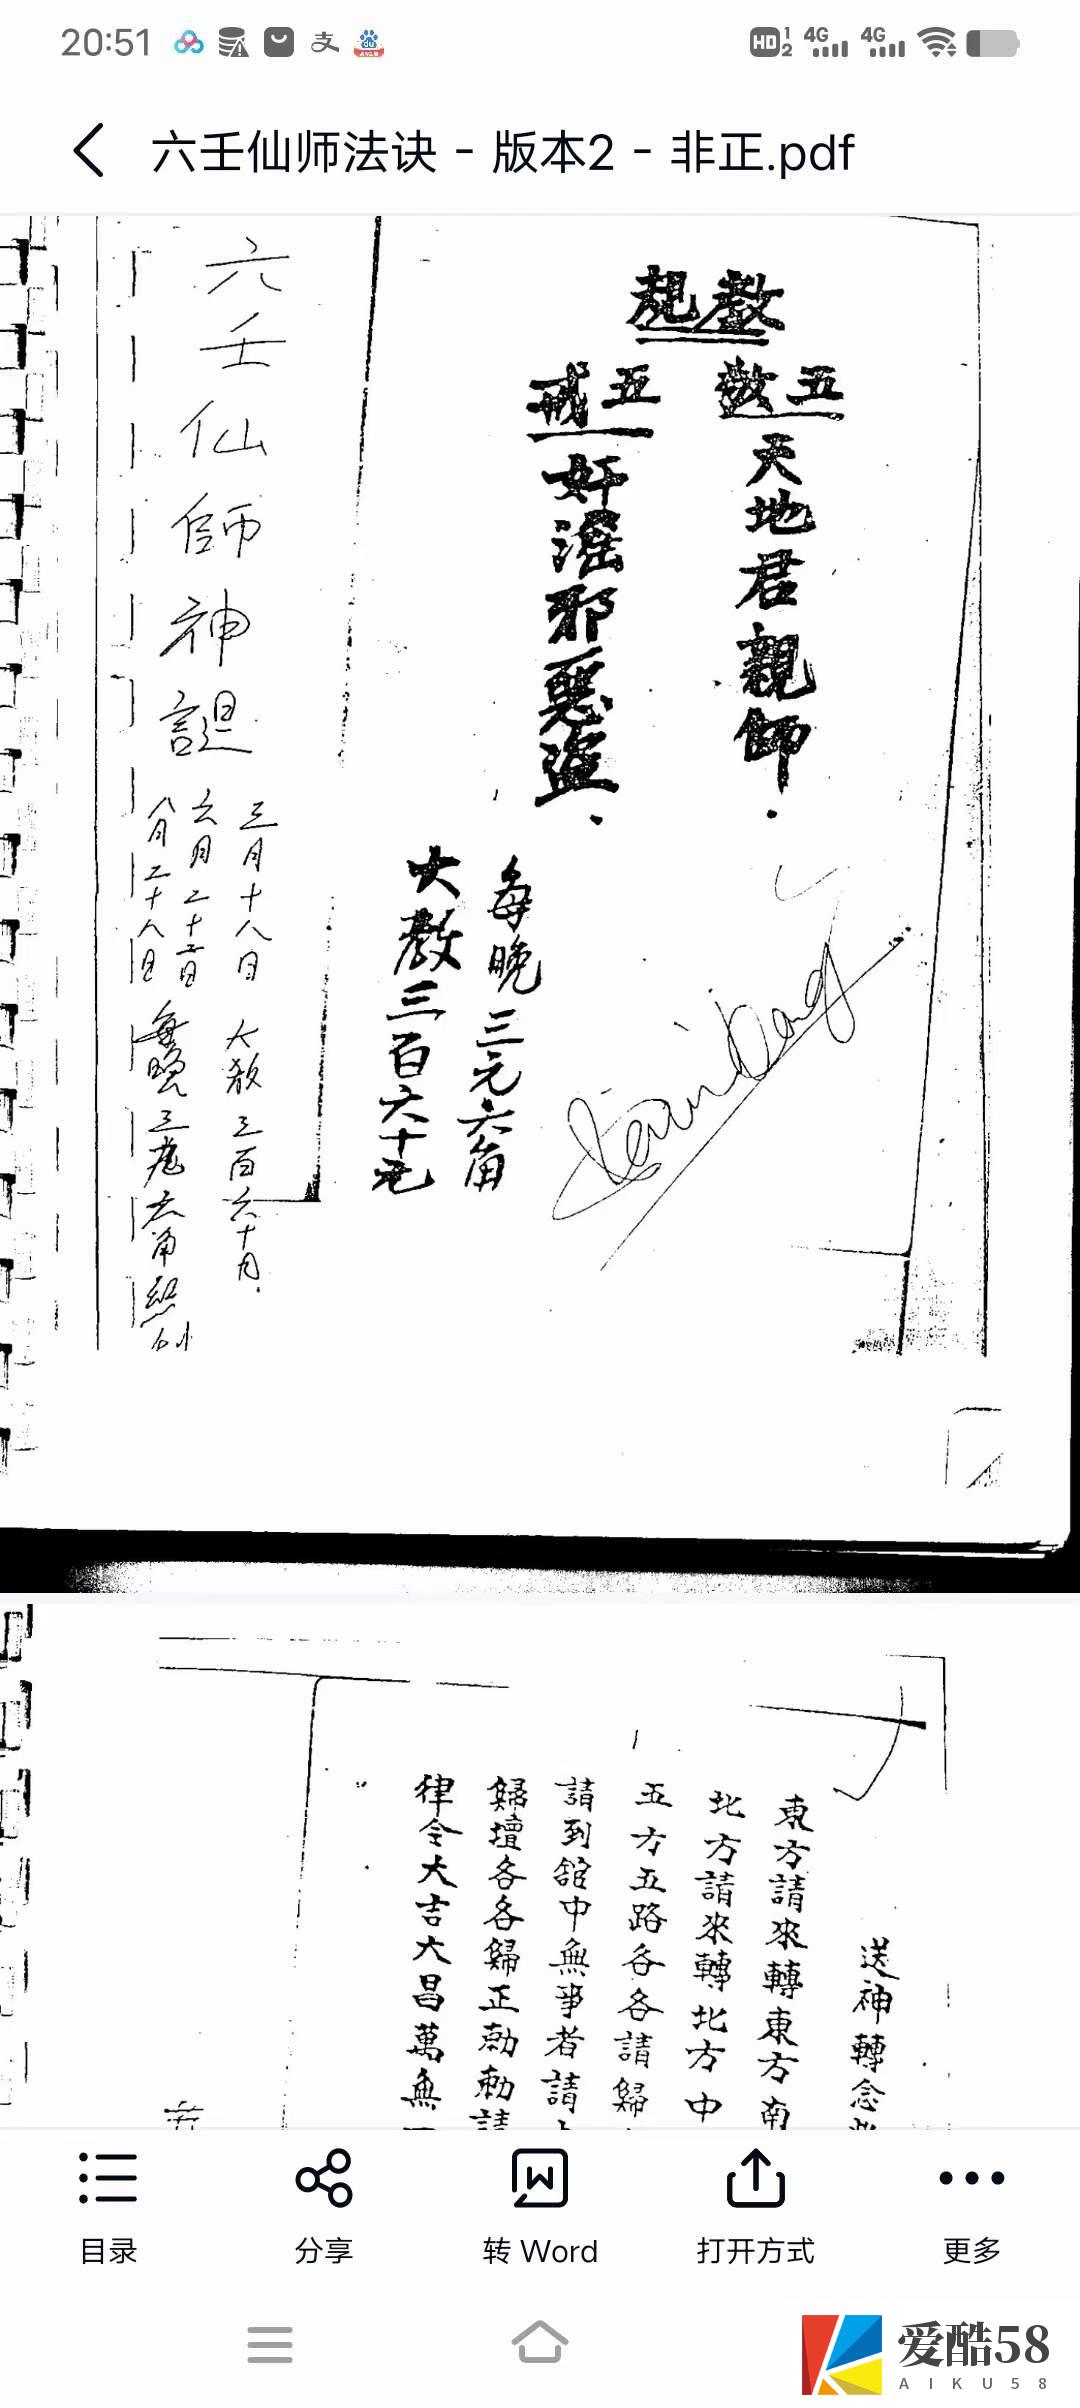 20:51
HD 1 2 4G 4G
六壬仙师法诀 - 版本2 - 非正.pdf
教規
五敬
天地君親師
五戒
奸淫邪惡盜
每晚三元六角
大教三百六十元
六壬仙師神誕
三月十八日
六月二十二日
八月二十八日
大教三百六十
每晚三元六角
送神轉念
東方請來轉東方南
北方請來轉北方中
五方五路各各請歸
請到舘中無事者請
歸壇各各歸正勅勅請
律令大吉大昌萬無
目录
分享
转 Word
打开方式
更多
爱酷58
AIKU58